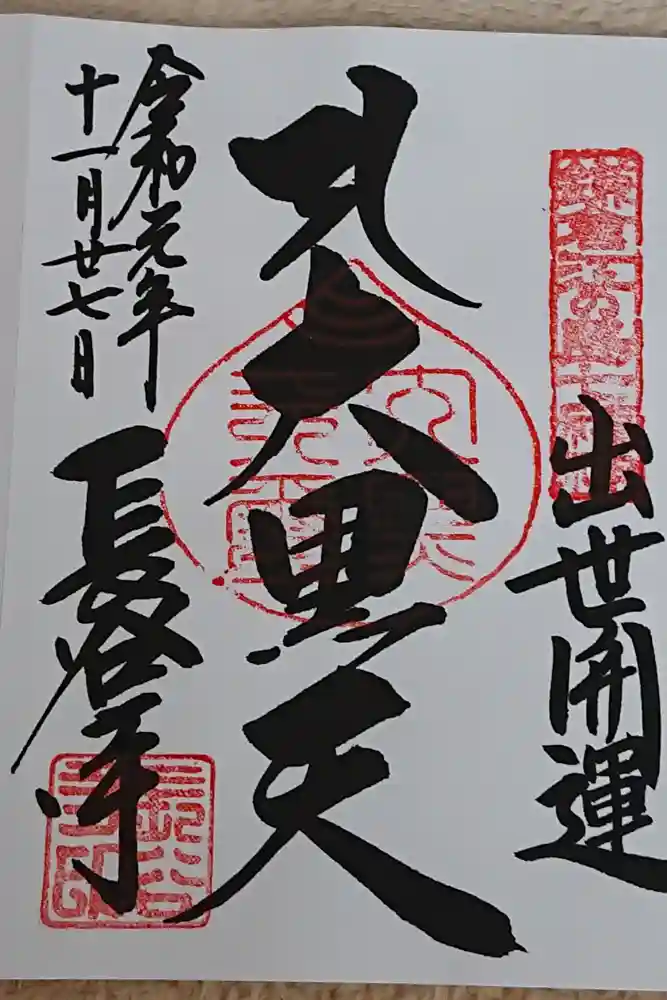 出世開運
大黒天
令和元年
十一月廿七日
長谷寺